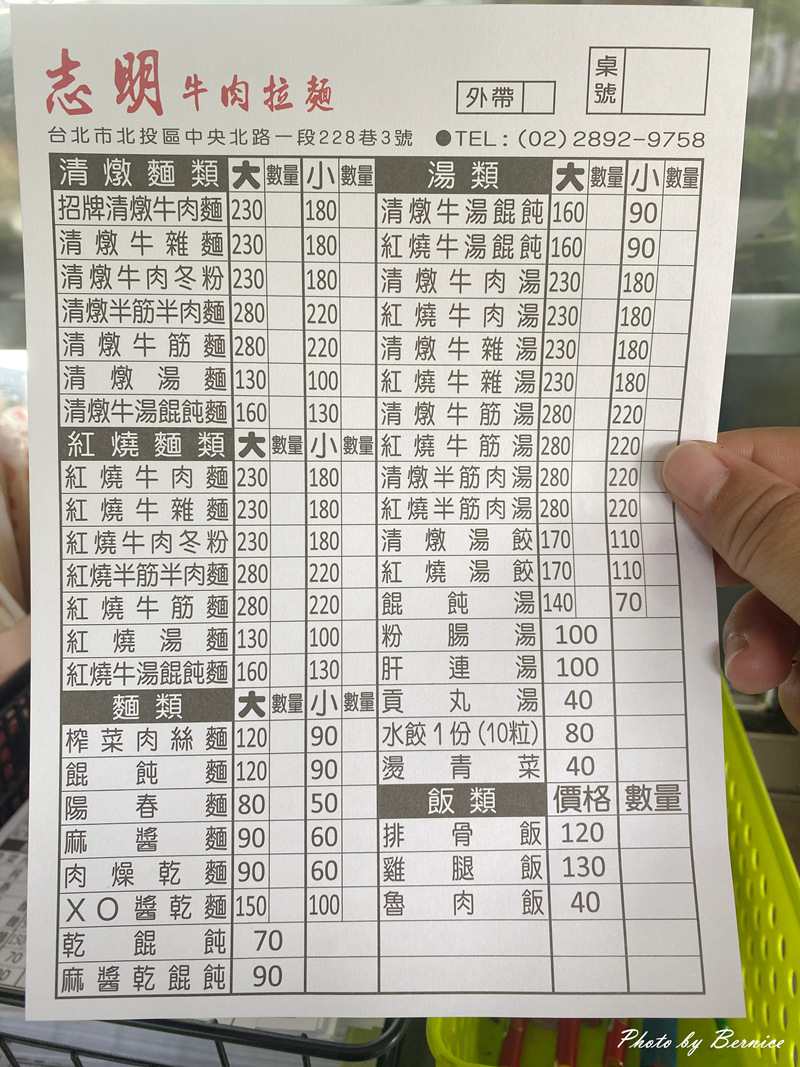 志明牛肉拉麵
外帶
桌號
台北市北投區中央北路一段228巷3號 ●TEL:(02)2892-9758
清燉麵類 大 數量 小 數量
招牌清燉牛肉麵 230 180
清燉牛雜麵 230 180
清燉牛肉冬粉 230 180
清燉半筋半肉麵 280 220
清燉牛筋麵 280 220
清燉湯麵 130 100
清燉牛湯餛飩麵 160 130
紅燒麵類 大 數量 小 數量
紅燒牛肉麵 230 180
紅燒牛雜麵 230 180
紅燒牛肉冬粉 230 180
紅燒半筋半肉麵 280 220
紅燒牛筋麵 280 220
紅燒湯麵 130 100
紅燒牛湯餛飩麵 160 130
麵類 大 數量 小 數量
榨菜肉絲麵 120 90
餛飩麵 120 90
陽春麵 80 50
麻醬麵 90 60
肉燥乾麵 90 60
XO醬乾麵 150 100
乾餛飩 70
麻醬乾餛飩 90
湯類 大 數量 小 數量
清燉牛湯餛飩 160 90
紅燒牛湯餛飩 160 90
清燉牛肉湯 230 180
紅燒牛肉湯 230 180
清燉牛雜湯 230 180
紅燒牛雜湯 230 180
清燉牛筋湯 280 220
紅燒牛筋湯 280 220
清燉半筋肉湯 280 220
紅燒半筋肉湯 280 220
清燉湯餃 170 110
紅燒湯餃 170 110
餛飩湯 140 70
粉腸湯 100
肝連湯 100
貢丸湯 40
水餃1份(10粒) 80
燙青菜 40
飯類 價格 數量
排骨飯 120
雞腿飯 130
魯肉飯 40
Photo by Bernice